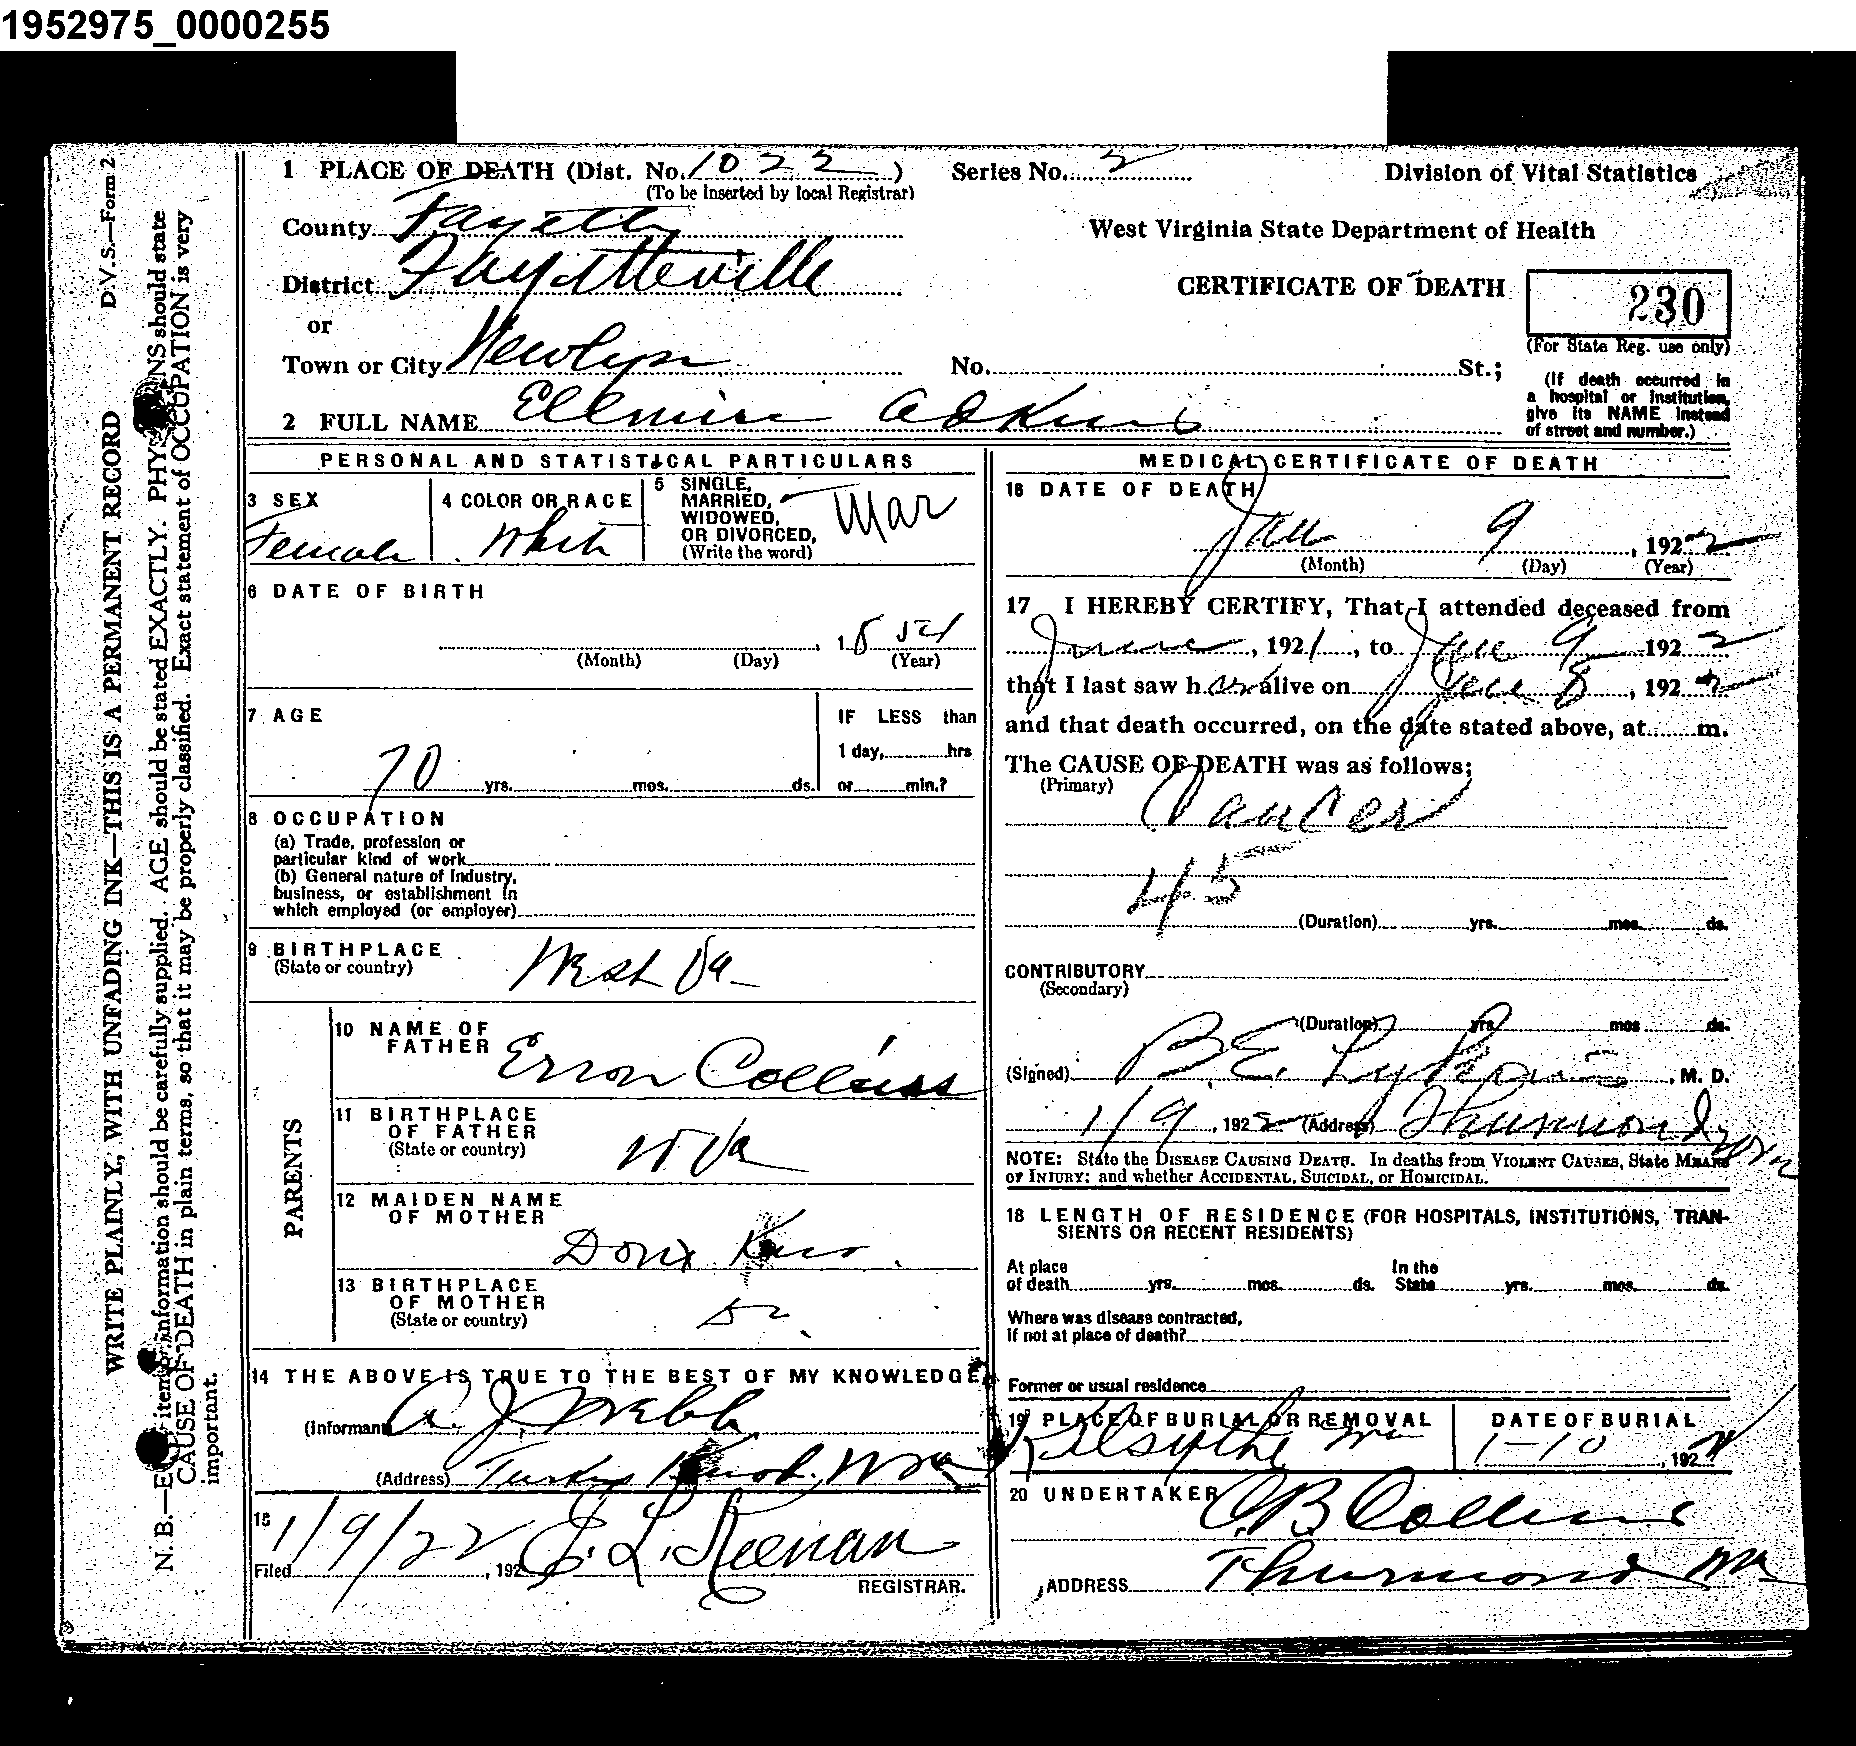 1952975_0000255
D.V.S.—Form 2
WRITE PLAINLY, WITH UNFADING INK—THIS IS A PERMANENT RECORD
N. B.— item information should be carefully supplied. AGE should be stated EXACTLY. should state
CAUSE OF DEATH in plain terms, so that it may be properly classified. Exact statement of OCCUPATION is very
important.
1 PLACE OF DEATH (Dist. No. 1022) Series No. 2 Division of Vital Statistics
(To be inserted by local Registrar)
County Fayette
West Virginia State Department of Health
District Fayetteville
CERTIFICATE OF DEATH 230
or
(For State Reg. use only)
Town or City Newlyn No. St.;
(If death occurred in
a hospital or Institution,
give its NAME instead
of street and number.)
2 FULL NAME Adkins
PERSONAL AND STATISTICAL PARTICULARS
3 SEX
Female
4 COLOR OR RACE
White
5 SINGLE,
MARRIED,
WIDOWED,
OR DIVORCED,
(Write the word)
Mar
6 DATE OF BIRTH
(Month) (Day) (Year)
7 AGE
70 yrs. mos. ds.
IF LESS than
1 day, hrs
or min.?
8 OCCUPATION
(a) Trade, profession or
particular kind of work
(b) General nature of Industry,
business, or establishment in
which employed (or employer)
9 BIRTHPLACE
(State or country)
West Va
PARENTS
10 NAME OF
FATHER
Erron Collins
11 BIRTHPLACE
OF FATHER
(State or country)
W Va
12 MAIDEN NAME
OF MOTHER
13 BIRTHPLACE
OF MOTHER
(State or country)
Do
14 THE ABOVE IS TRUE TO THE BEST OF MY KNOWLEDGE
(Informant) A. J. Webb
(Address) Turkey Knob, W Va
15
Filed 1/9/22, 192 E. L. Keenan
REGISTRAR.
MEDICAL CERTIFICATE OF DEATH
16 DATE OF DEATH
Jan 9, 1922
(Month) (Day) (Year)
17 I HEREBY CERTIFY, That I attended deceased from
June, 1921, to Jan 9 1922
that I last saw her alive on Jan 8, 1922
and that death occurred, on the date stated above, at m.
The CAUSE OF DEATH was as follows;
(Primary)
Cancer
45
(Duration) yrs. mos. ds.
CONTRIBUTORY
(Secondary)
(Duration) yrs mos ds.
(Signed) B. E. Lykins, M. D.
1/9, 1922 (Address) Thurmond W Va
NOTE: State the DISEASE CAUSING DEATH. In deaths from VIOLENT CAUSES, State MEANS
OF INJURY; and whether ACCIDENTAL, SUICIDAL, or HOMICIDAL.
18 LENGTH OF RESIDENCE (FOR HOSPITALS, INSTITUTIONS, TRAN-
SIENTS OR RECENT RESIDENTS)
At place In the
of death yrs. mos. ds. State yrs. mos. ds.
Where was disease contracted,
If not at place of death?
Former or usual residence
19 PLACE OF BURIAL OR REMOVAL
Kilsythe W Va
DATE OF BURIAL
1-10, 1922
20 UNDERTAKER
C. B. Collins
ADDRESS Thurmond W Va